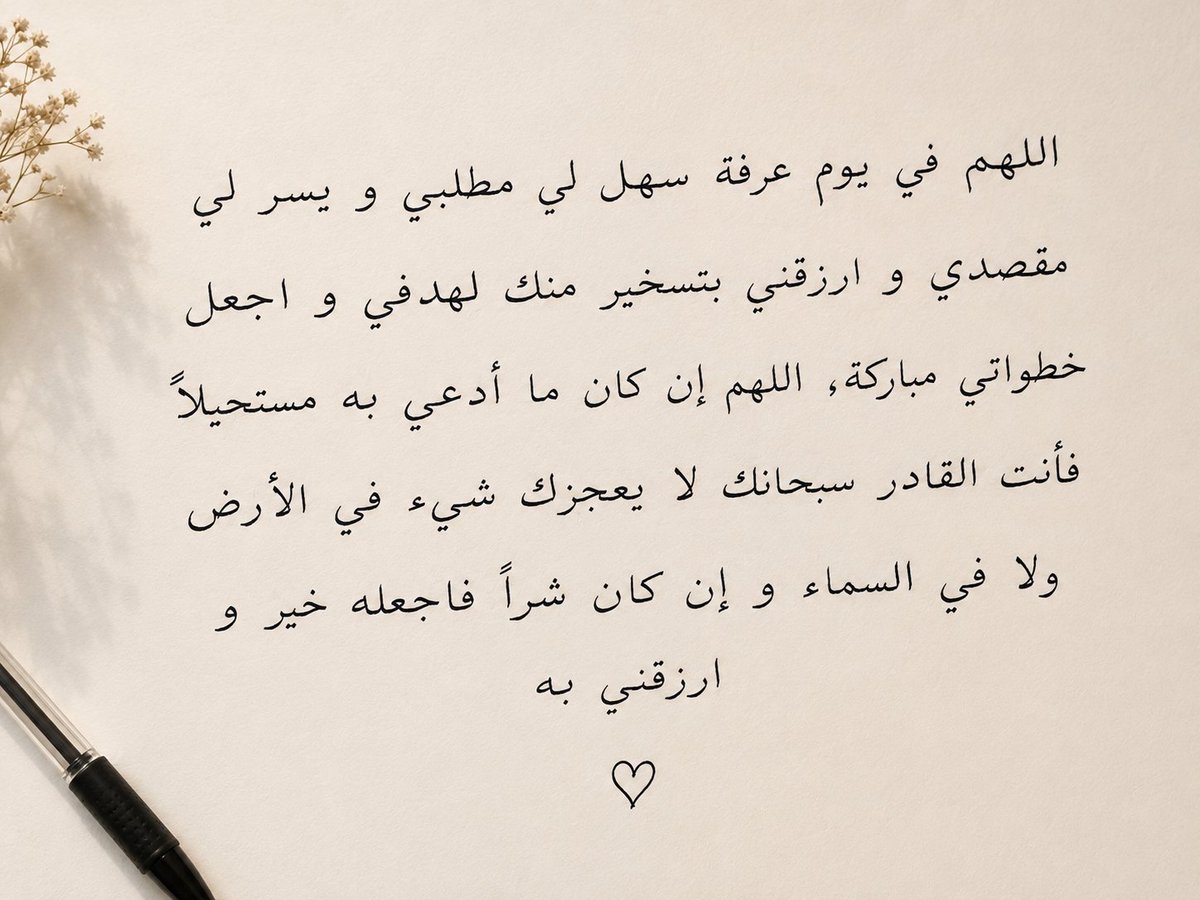 اللهم في يوم عرفة سهل لي مطلبي و يسر لي
مقصدي و ارزقني بتسخير منك لهدفي و اجعل
خطواتي مباركة، اللهم إن كان ما أدعي به مستحيلاً
فأنت القادر سبحانك لا يعجزك شيء في الأرض
ولا في السماء و إن كان شراً فاجعله خير و
ارزقني به
♡